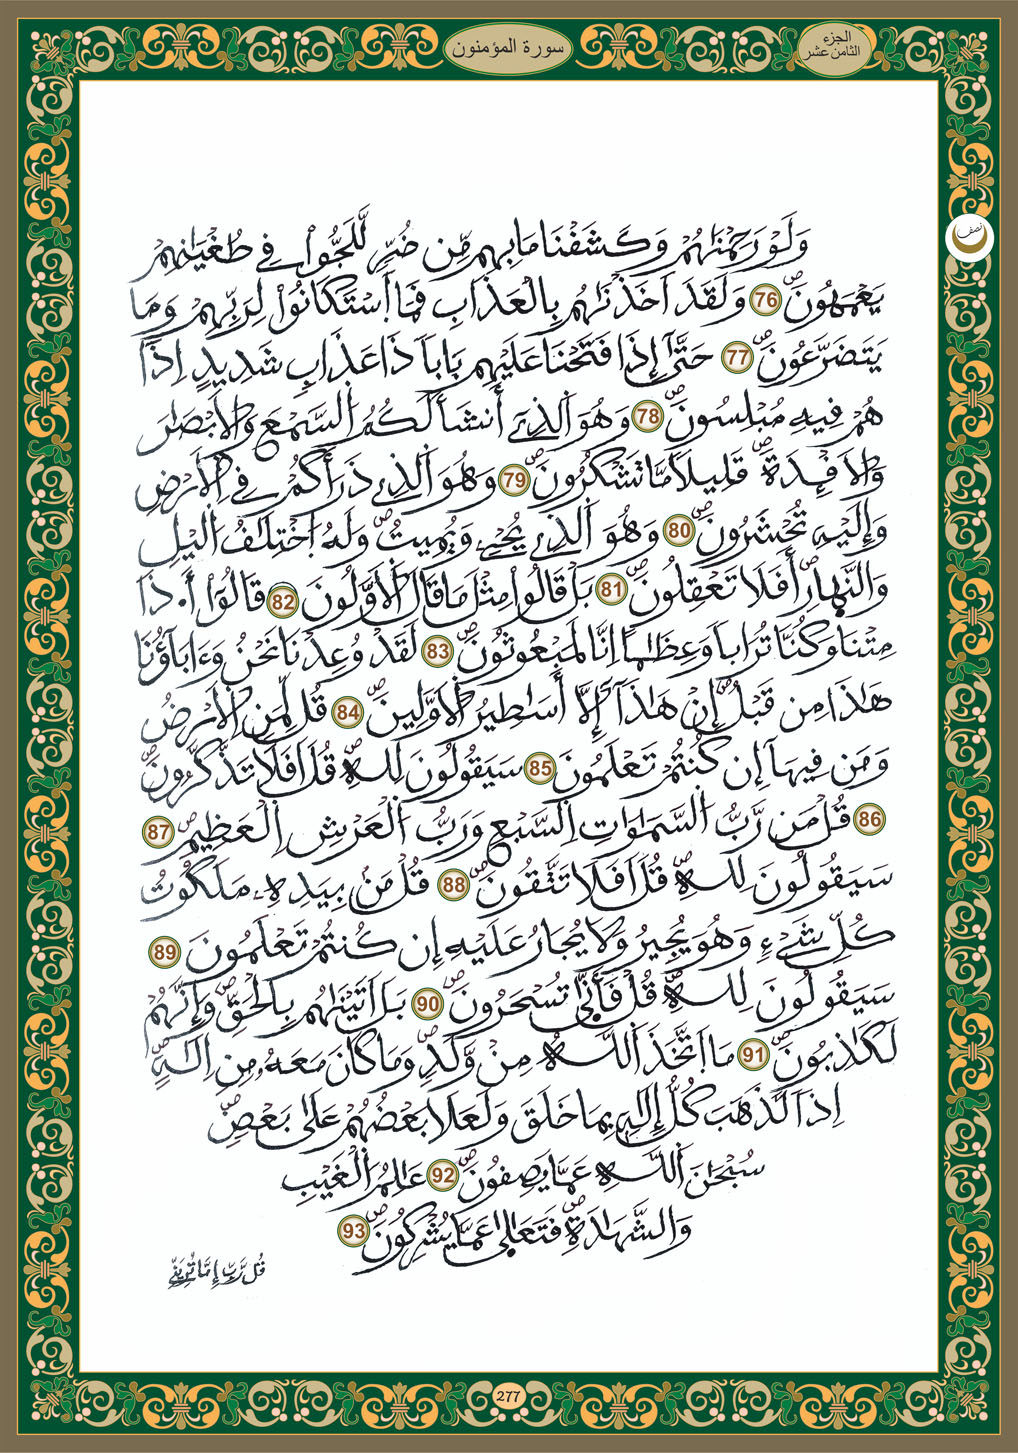 سورة المؤمنون
الجزء
الثامن عشر
نصف
وَلَوْ رَحِمْنَاهُمْ وَكَشَفْنَا مَا بِهِم مِّن ضُرٍّ لَّلَجُّواْ فِي طُغْيَانِهِمْ
يَعْمَهُونَ ص 76 وَلَقَدَ اَخَذْنَاهُم بِالْعَذَابِ فَمَا اَسْتَكَانُواْ لِرَبِّهِمْ وَمَا
يَتَضَرَّعُونَ ص 77 حَتَّىٰ إِذَا فَتَحْنَا عَلَيْهِم بَاباً ذَا عَذَابٍ شَدِيدٍ اِذَا
هُمْ فِيهِ مُبْلِسُونَ ص 78 وَهُوَ اَلذِےٓ أَنشَأَ لَكُمُ السَّمْعَ وَالاَبْصَارَ
وَالاَفْـِٕدَةَ ص قَلِيلاً مَّا تَشْكُرُونَ ص 79 وَهُوَ اَلذِے ذَرَأَكُمْ فِے اِلاَرْضِ
وَإِلَيْهِ تُحْشَرُونَ ص 80 وَهُوَ اَلذِے يُحْيِے وَيُمِيتُ ص وَلَهُ اُخْتِلَٰفُ اُليْلِ
وَالنَّهِارِ ص أَفَلَا تَعْقِلُونَ ص 81 بَلْ قَالُواْ مِثْلَ مَا قَالَ اَلاَوَّلُونَ 82 قَالُوٓاْ أَ.ذَا
مِتْنَا وَكُنَّا تُرَاباً وَعِظَٰماً اِنَّا لَمَبْعُوثُونَ ص 83 لَقَدْ وُعِدْنَا نَحْنُ وَءَابَآؤُنَا
هَٰذَا مِن قَبْلُ ص إِنْ هَٰذَآ إِلَّآ أَسَٰطِيرُ اُلاَوَّلِينَ ص 84 قُل لِّمَنِ اِلاَرْضُ
وَمَن فِيهَآ إِن كُنتُمْ تَعْلَمُونَ ص 85 سَيَقُولُونَ لِلهِ ص قُلَ اَفَلَا تَذَّكَّرُونَ ص
86 قُلْ مَن رَّبُّ السَّمَٰوَٰتِ اِلسَّبْعِ وَرَبُّ اُلْعَرْشِ اِلْعَظِيمِ ص 87
سَيَقُولُونَ لِلهِ ص قُلَ اَفَلَا تَتَّقُونَ ص 88 قُلْ مَنۢ بِيَدِهِۦ مَلَكُوتُ
كُلِّ شَےْءٍ وَهُوَ يُجِيرُ وَلَا يُجَارُ عَلَيْهِ إِن كُنتُمْ تَعْلَمُونَ 89
سَيَقُولُونَ لِلهِ ص قُلْ فَأَنّىٰ تُسْحَرُونَ ص 90 بَلَ اَتَيْنَٰهُم بِالْحَقِّ ص وَإِنَّهُمْ
لَكَٰذِبُونَ ص 91 مَا اَتَّخَذَ اَللَّهُ مِنْ وَّلَدٍ ص وَمَا كَانَ مَعَهُۥ مِنِ اِلَٰهٍ ص
اِذاً لَّذَهَبَ كُلُّ إِلَٰهِۢ بِمَا خَلَقَ وَلَعَلَا بَعْضُهُمْ عَلَىٰ بَعْضٍ ص
سُبْحَٰنَ اَللَّهِ عَمَّا يَصِفُونَ ص 92 عَٰلِمُ اُلْغَيْبِ
وَالشَّهَٰدَةِ ص فَتَعَٰلَىٰ عَمَّا يُشْرِكُونَ ص 93
قُل رَّبِّ إِمَّا تُرِيَنِّے
277